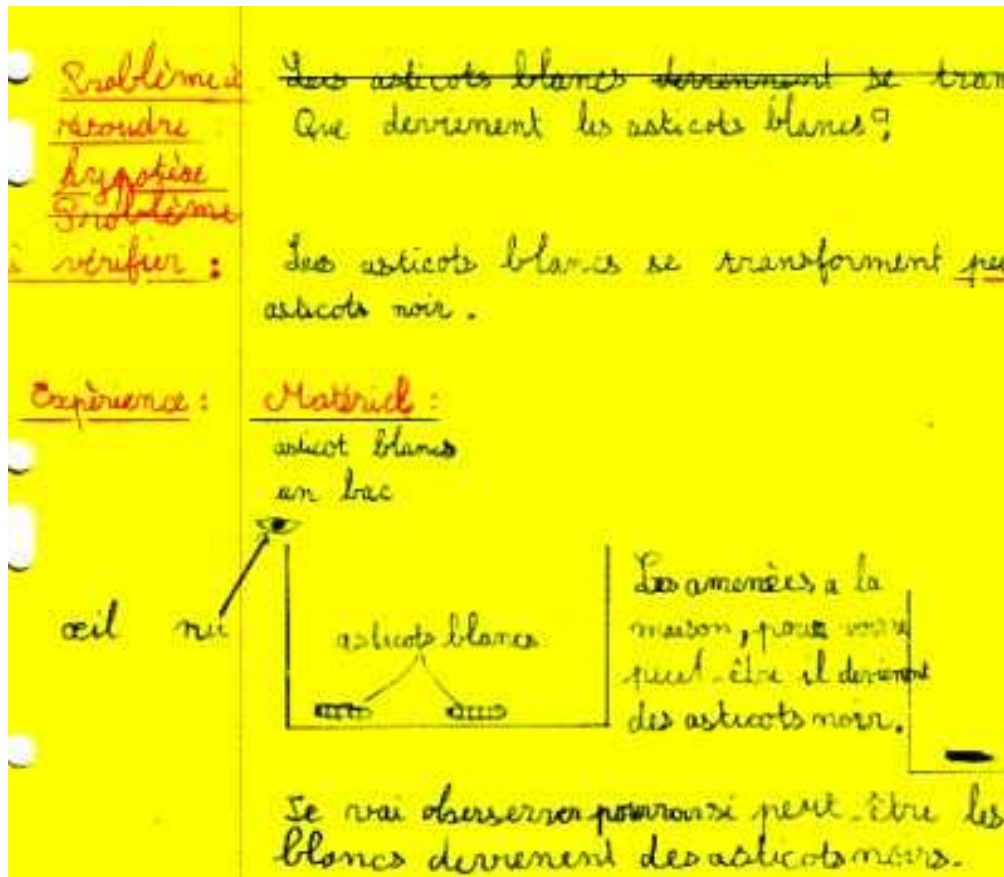 Problème à
résoudre :
hypotèse
Problème
à vérifier :
Les asticots blancs deviennent se tran
Que devienent les asticots blancs ?
Les asticots blancs se transforment peu
asticots noir.
Expèrience :
Matériel :
asticot blancs
un bac
œil nu
asticots blancs
Les amenèes a la
maison, pour voir si
peut-être il devienent
des asticots noir.
Je vai observer pour voir si peut-être les
blancs devienent des asticots noirs.